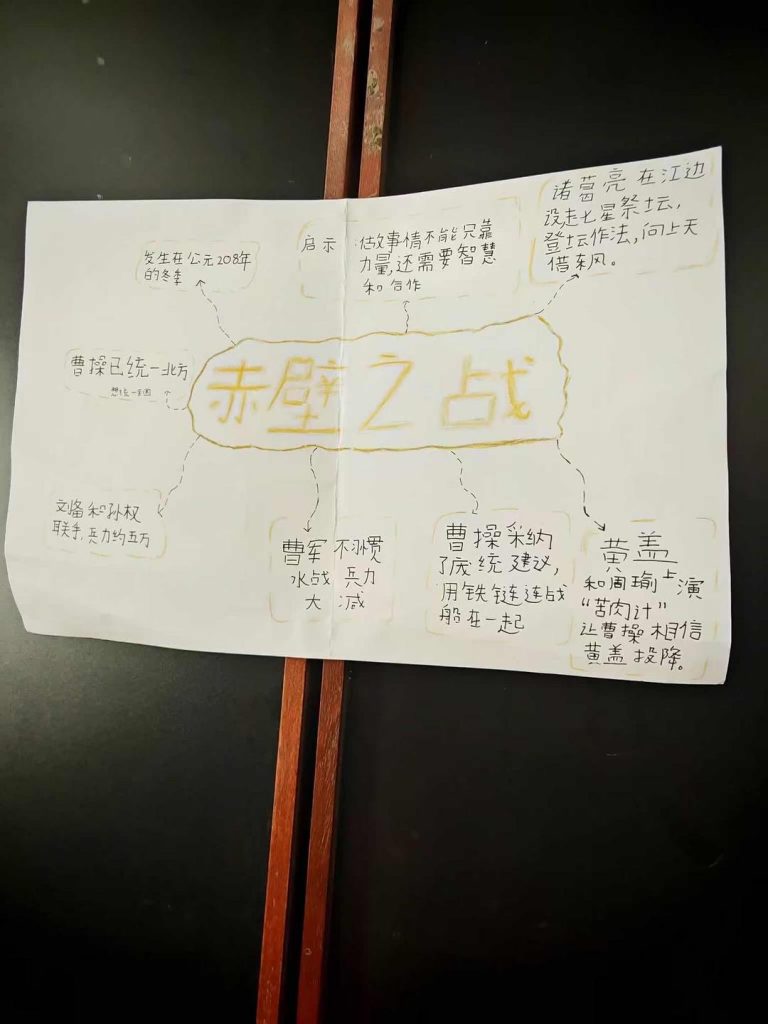 发生在公元208年
的冬季
启示
做故事情不能只靠
力量,还需要智慧
和合作
诸葛亮在江边
设起七星祭坛,
登坛作法,向上天
借东风。
曹操已统一北方
赤壁之战
刘备和孙权
联手,兵力约五万
曹军不习惯
水战兵力
大减
曹操采纳
了庞统建议,
用铁链连战
船在一起
黄盖
和周瑜上演
“苦肉计”
让曹操相信
黄盖投降。